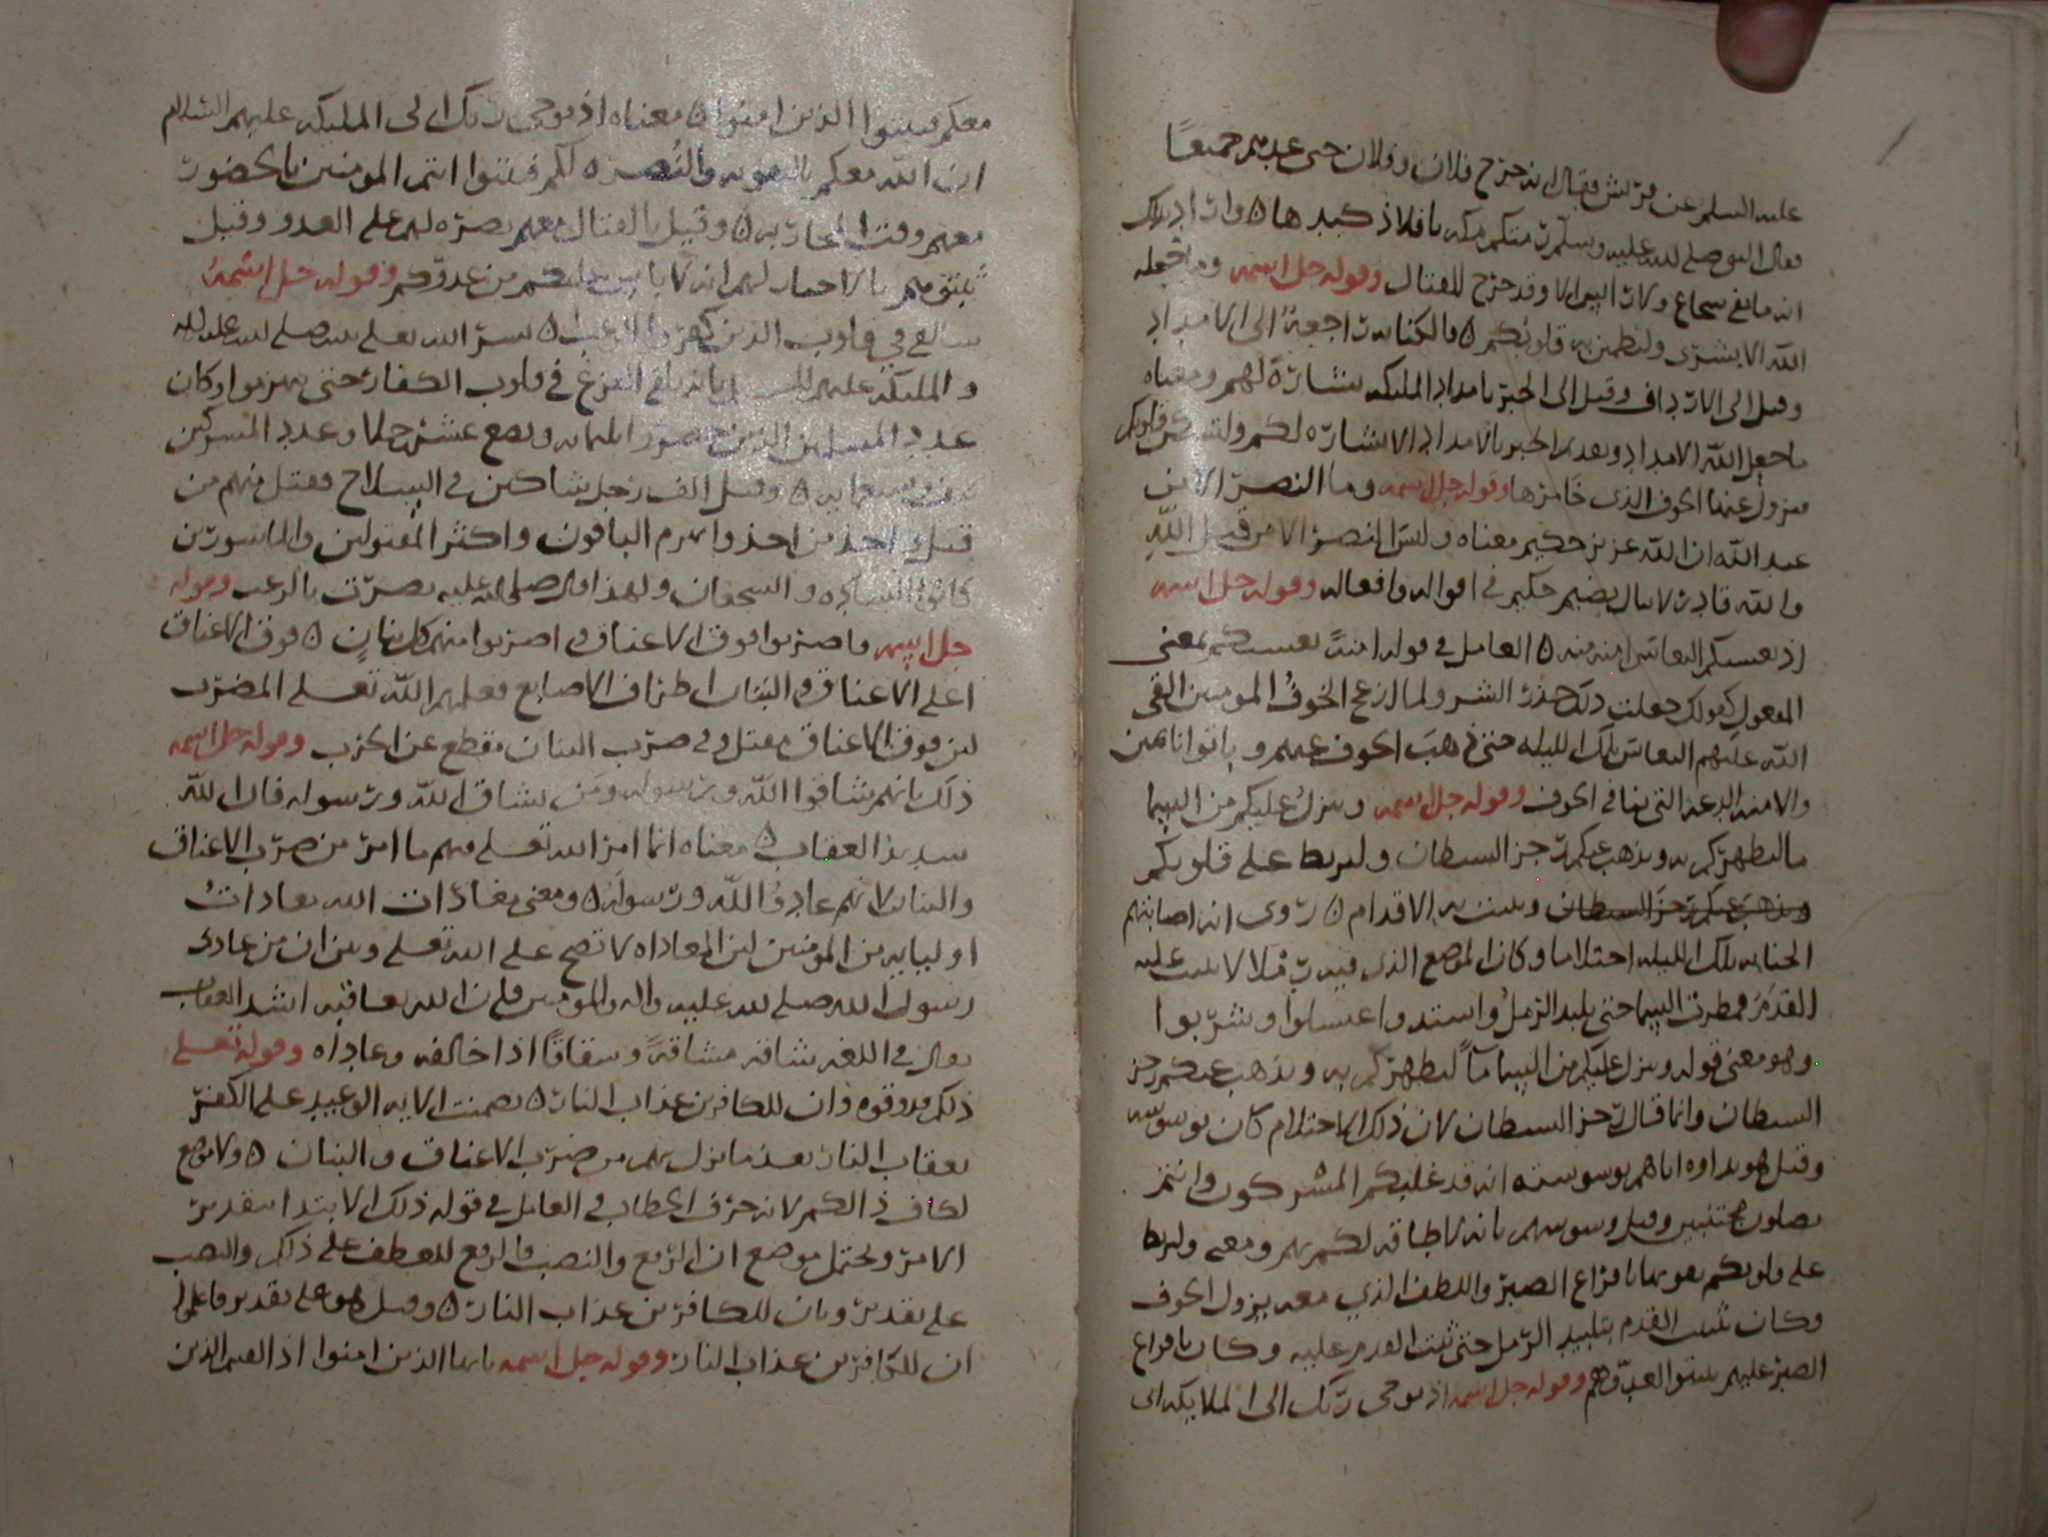 عليه السلم عن قريش فقال انه خرج فلان وفلان حتى عد بهم جميعًا
فقال النبي صلى الله عليه وسلم رمتكم مكه بافلاذ كبدها ٥ واراد بذلك
انه ما بقي شجاع ولا رئيس الا وقد خرج للقتال وقوله جل اسمه وما جعله
الله الا بشرى ولتطمئن به قلوبكم ٥ فالكنايه راجعة الى الامداد
وقيل الى الارداف وقيل الى الخبر بامداد الملائكه بشارة لهم ومعناه
ما جعل الله الامداد وتقديم الخبر بالامداد الا بشاره لكم ولتسكن قلوبكم
ويزول عنها الخوف الذي خامرها وقوله جل اسمه وما النصر الا من
عند الله ان الله عزيز حكيم معناه وليس النصر الا من قبل الله
والله قادر لا ينال بضيم حكيم في اقواله وافعاله وقوله جل اسمه
اذ يغشيكم النعاس امنه منه ٥ العامل في قوله امنةً يغشيكم بمعنى
المفعول كقولك فعلت ذلك حذر الشر ولما ازعج الخوف المومنين القى
الله عليهم النعاس تلك الليله حتى ذهب الخوف عنهم وباتوا نائمين
والامنه الدعه التي تنافي الخوف وقوله جل اسمه وينزل عليكم من السما
ما ليطهركم به ويذهب عنكم رجز الشيطان وليربط على قلوبكم
ويذهب عنكم رجز الشيطان ويثبت به الاقدام ٥ روي انه اصابتهم
الجنابه تلك الليله احتلاما وكان الموضع الذي فيه رملا لا يثبت عليه
القدم فمطرت السما حتى تلبد الرمل واشتد واغتسلوا وشربوا
وهو معنى قوله وينزل عليكم من السما مآً ليطهركم به ويذهب عنكم رجز
الشيطان وانما قال رجز الشيطان لان ذلك الاحتلام كان بوسوسه
وقيل هو بداوه اياهم بوسوسته انه قد غلبكم المشركون وانتم
تصلون مجنبين وقيل وسوسهم بانه لا طاقه لكم بهم ومعنى وليربط
على قلوبكم يقويها بافراغ الصبر واللطف الذي معه يزول الخوف
وكان تثبيت القدم بتلبيد الرمل حتى ثبت القدم عليه وكان بافراغ
الصبر عليهم يثبتوا لعدوهم وقوله جل اسمه اذ يوحي ربك الى الملايكه اني
معكم فثبتوا الذين امنوا ٥ معناه اذ يوحي ربك الى المليكه عليهم السلام
ان الله معكم بالمعونه والنصره لكم فثبتوا انتم المومنين بالحضور
معهم وقت المحاربه ٥ وقيل بالقتال معهم نصره لهم على العدو وقيل
ثبتوهم بالاخبار لهم انه لا باس عليكم من عدوكم وقوله جل اسمه
سالقي في قلوب الذين كفروا الرعب ٥ بشر الله تعلى نبيه صلى الله عليه واله
والمليكه عليهم السلام بانه يلقي الفزع في قلوب الكفار حتى ينهزموا وكان
عدد المسلمين الذين حضروا ثلثمايه وبضع عشر رجلا وعدد المشركين
وتسعمايه ٥ وقيل الف رجل شاكين في السلاح فقتل منهم من
قتل واخذ من اخذ وانهزم الباقون واكثر المقتولين والماسورين
كانوا الساده والشجعان ولهذا قال صلى الله عليه نصرت بالرعب وقوله
جل اسمه فاضربوا فوق الاعناق واضربوا منهم كل بنان ٥ فوق الاعناق
اعلى الاعناق والبنان اطراف الاصابع فعلمهم الله تعلى المضرب
لان فوق الاعناق مقتل وفي ضرب البنان مقطع عن الحرب وقوله جل اسمه
ذلك بانهم شاقوا الله ورسوله ومن يشاق الله ورسوله فان الله
شديد العقاب ٥ معناه انما امر الله تعلى فيهم ما امر من ضرب الاعناق
والبنان لانهم عادوا الله ورسوله ٥ ومعنى معاداة الله معاداتُ
اوليايه من المومنين لان المعاداه لا تصح على الله تعلى وبين ان من عادى
رسول الله صلى الله عليه واله والمومنين فان الله يعاقبه اشد العقاب
يقال في اللغه شاقه مشاقةً وشقاقًا اذا خالفه وعاداه وقوله تعلى
ذلكم فذوقوه وان للكافرين عذاب النار ٥ تضمنت الايه الوعيد على الكفر
بعقاب النار بعد ما نزل بهم من ضرب الاعناق والبنان ٥ ولا موضع
لكاف ذالكم لانه حرف الخطاب والعامل في قوله ذلك الابتدا بتقدير
الامر ويحتمل موضع ان الرفع والنصب فالرفع للعطف على ذلك والنصب
على تقدير وبان للكافرين عذاب النار ٥ وقيل هو على تقدير فاعلموا
ان للكافرين عذاب النار وقوله جل اسمه ياءيها الذين امنوا اذا لقيتم الذين